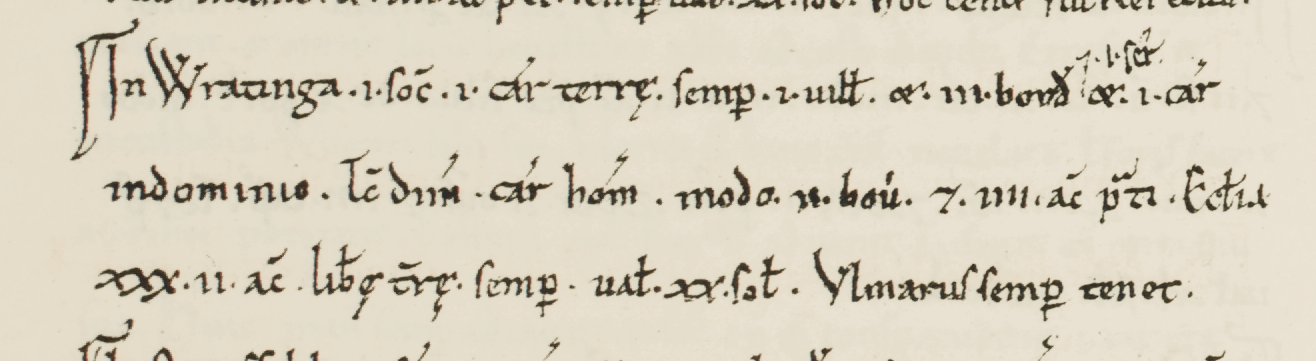 In Wratinga .i. soc̄ .i. cár terrę. semp̄ .i. uill̄. & .iii. bord̄ ⁊ .i. ser̄ & .i. cár
indominio . T̄c dim̄ . cár hom̄ . modo .ii. bou . ⁊ .iiii. ac̄ p̄ti . Eccł̄ia
xxx.ii. ac̄ . lib̄ę t̄rę. semp̄ . ual̄ . xx. sol̄ . Vlmarus semp̄ tenet .